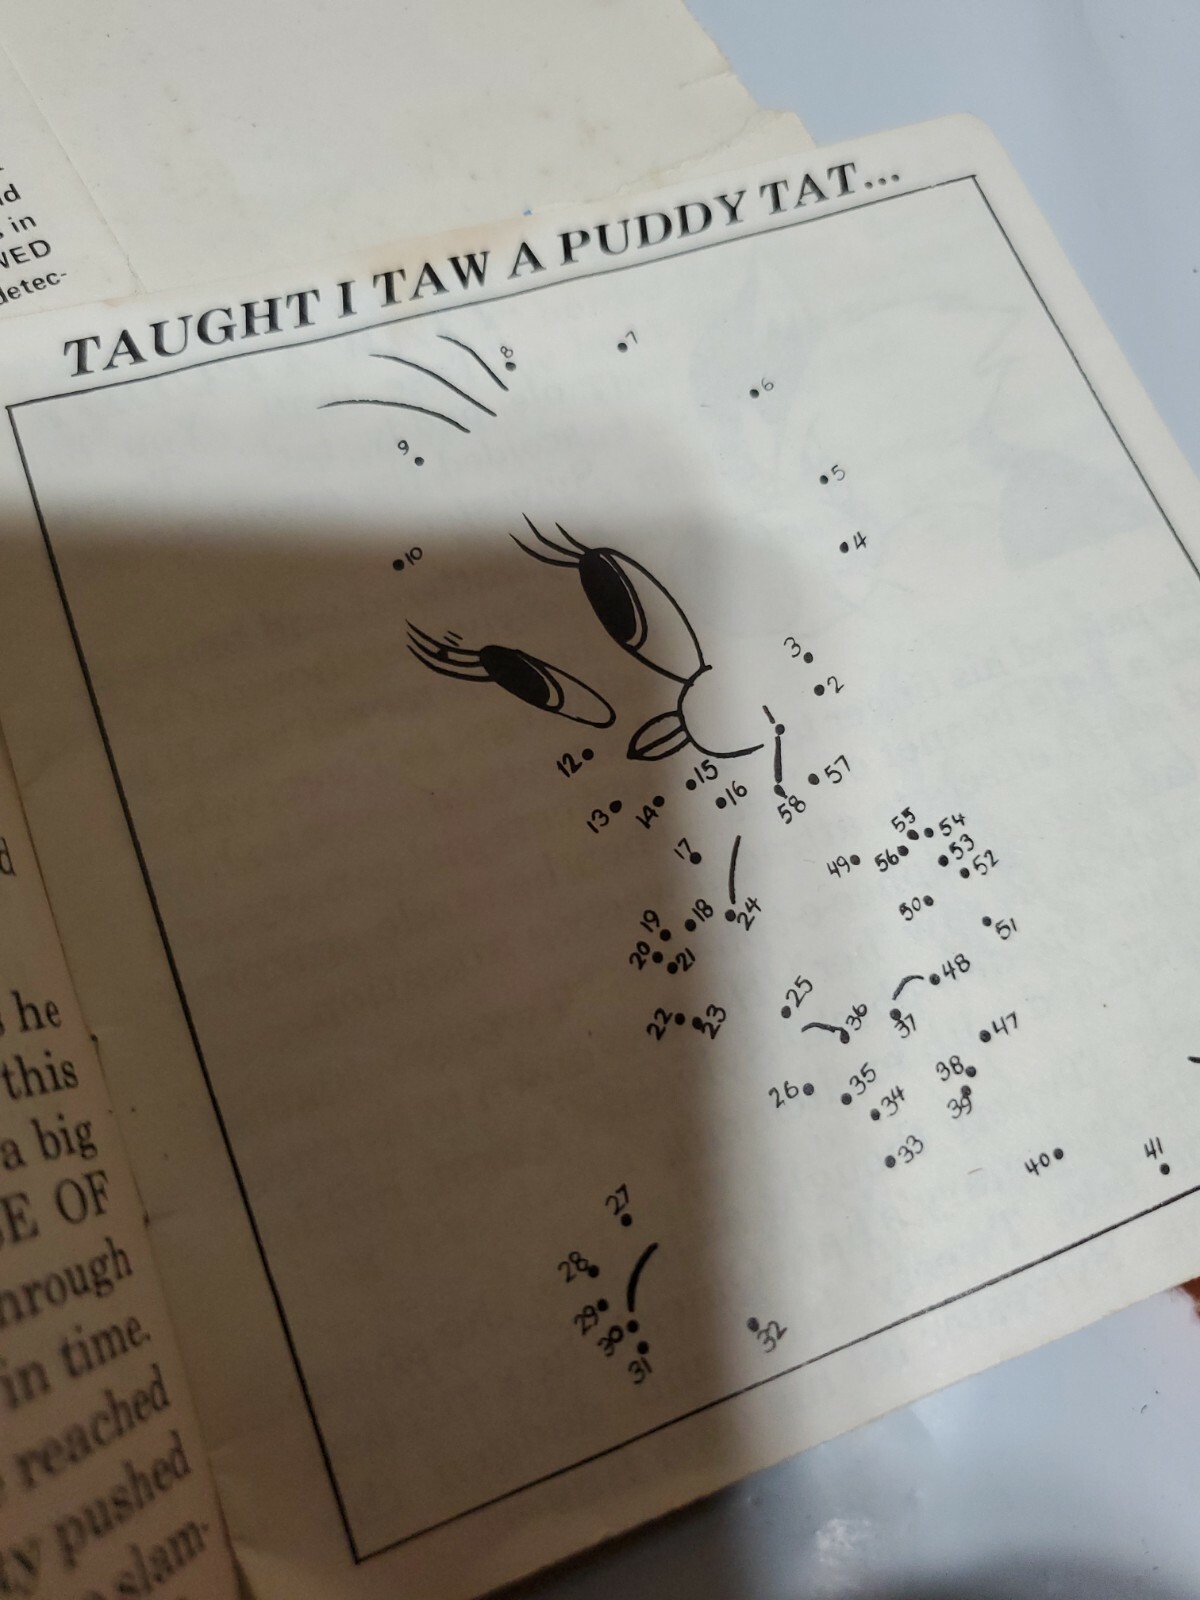 TAUGHT I TAW A PUDDY TAT...
in
WED
detec-
8
7
6
9
5
10
4
3
2
1
12
15
57
13
14
16
58
55
54
17
49
56
53
52
19
18
24
50
51
20
21
48
25
22
23
36
37
47
26
35
38
34
39
33
40
41
27
28
29
30
32
31
he
this
a big
OF
in time.
reached
pushed
slam-